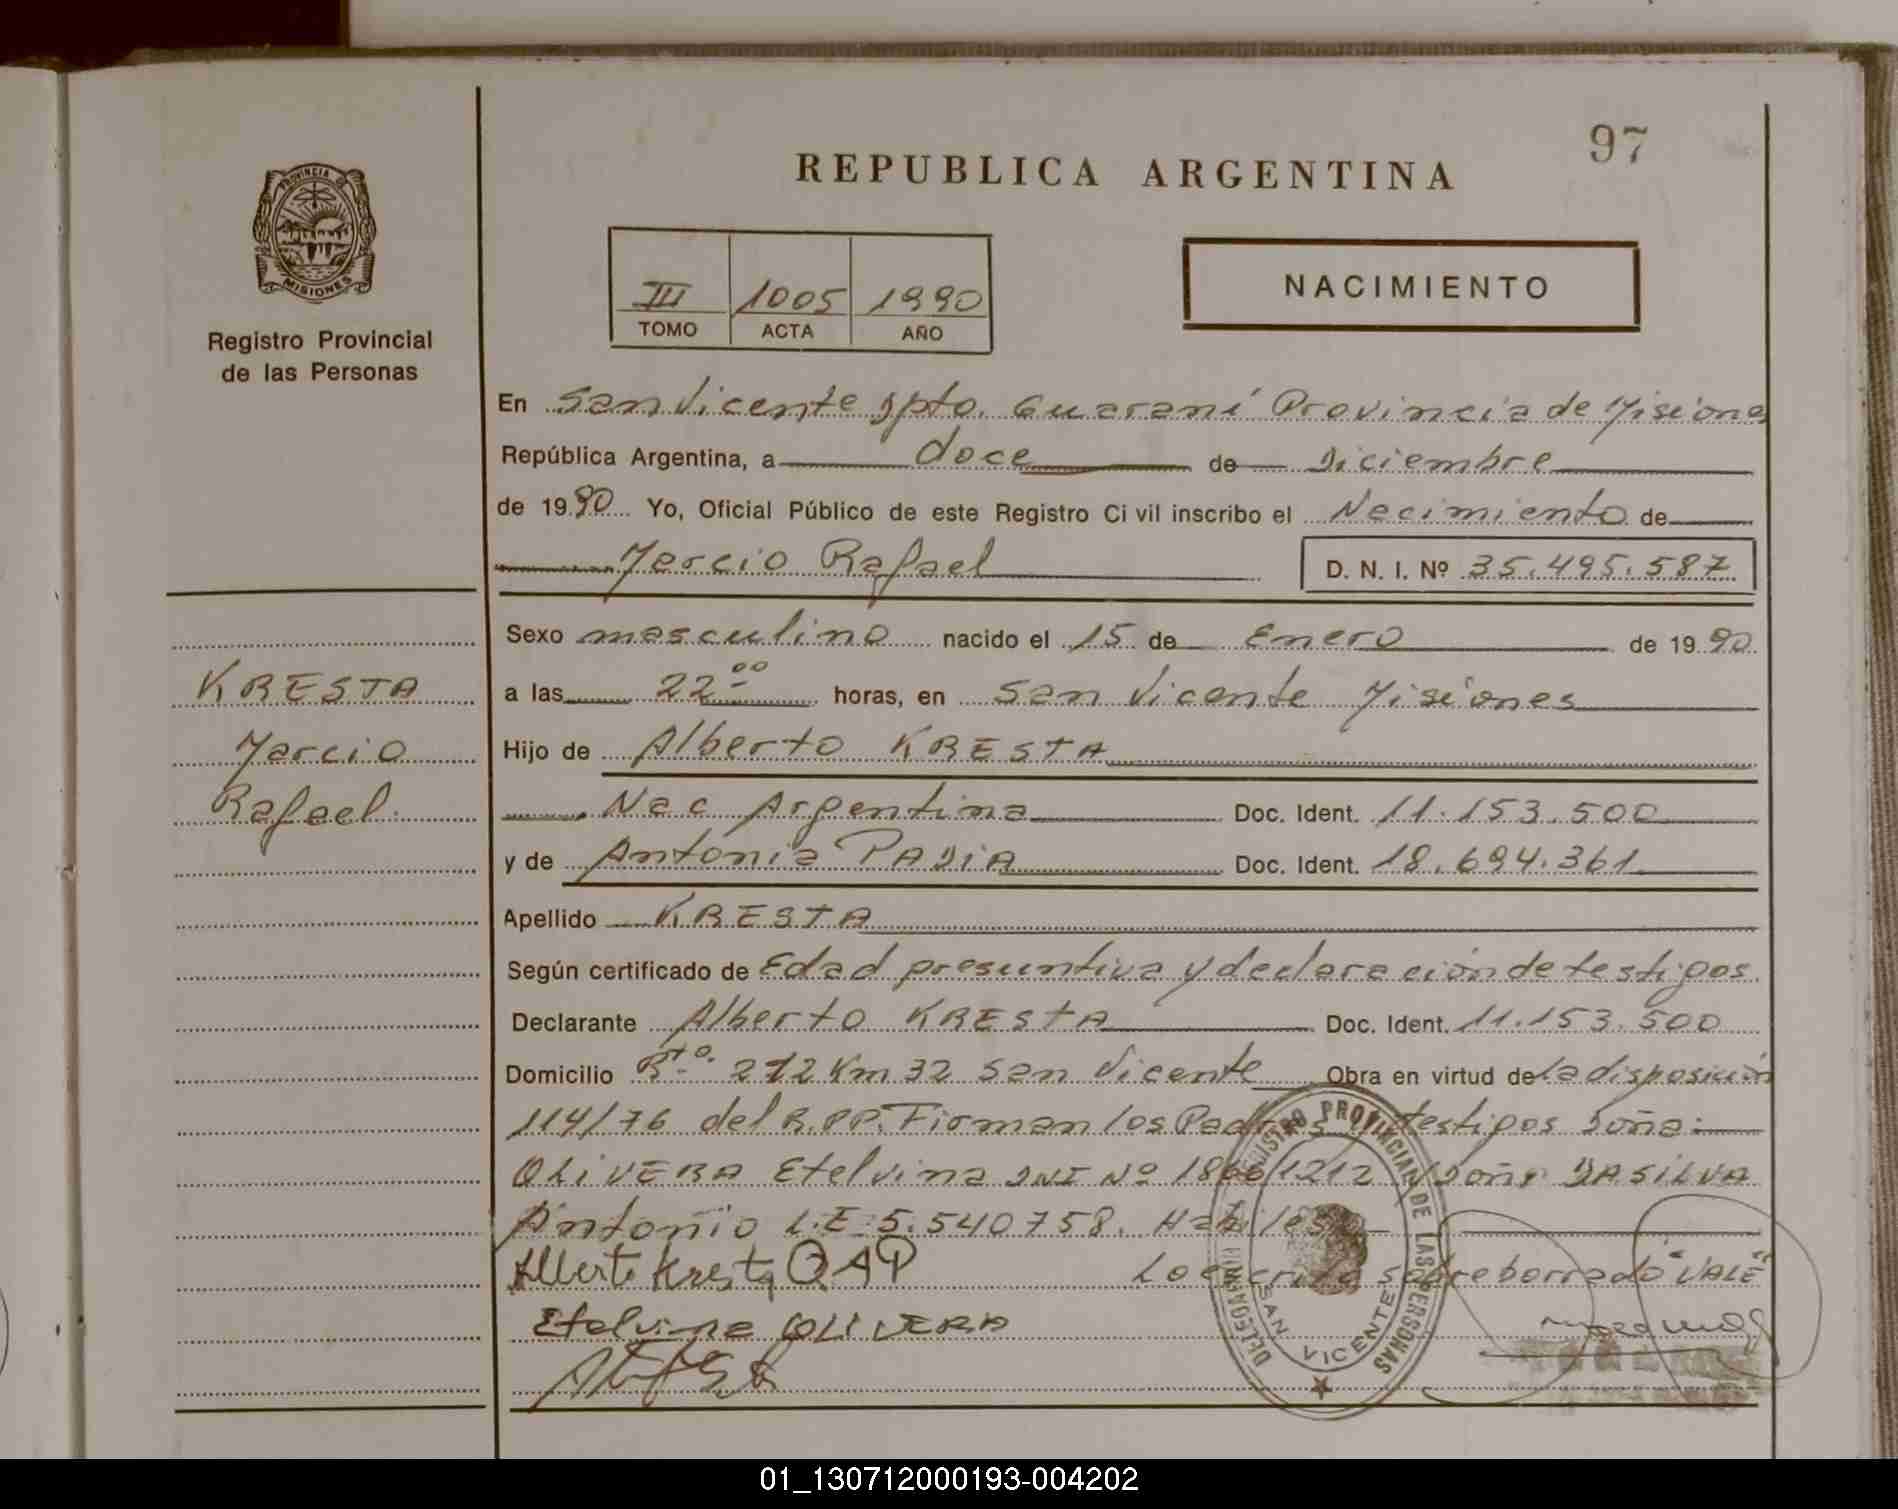 97
REPUBLICA ARGENTINA
PROVINCIA DE
MISIONES
Registro Provincial
de las Personas
III 1005 1990
TOMO ACTA AÑO
NACIMIENTO
En San Vicente Dpto. Guaraní Provincia de Misiones
República Argentina, a doce de Diciembre
de 1990 Yo, Oficial Público de este Registro Civil inscribo el Nacimiento de
Marcio Rafael D. N. I. Nº 35.495.587
Sexo masculino nacido el 15 de Enero de 1990
KRESTA
a las 22⁰⁰ horas, en San Vicente Misiones
Marcio
Hijo de Alberto KRESTA
Rafael.
Nac Argentina Doc. Ident. 11.153.500
y de Antonia PADIA Doc. Ident. 18.694.361
Apellido KRESTA
Según certificado de Edad presuntiva y declaración de testigos.
Declarante Alberto KRESTA Doc. Ident. 11.153.500
Domicilio Rta. 212 Km 32 San Vicente Obra en virtud de la disposición
114/76 del R.PP. Firman los Padres y testigos Doña:
OLIVERA Etelvina DNI Nº 18661212 y Doñ DASILVA
Antonio L.E 5.540758. Habiles
Alberto Kresta O A P Lo escrito sobreborrado "VALE"
Etelvina OLIVERA
DELEGACION REGISTRO PROVINCIAL DE LAS PERSONAS
SAN VICENTE
01_130712000193-004202